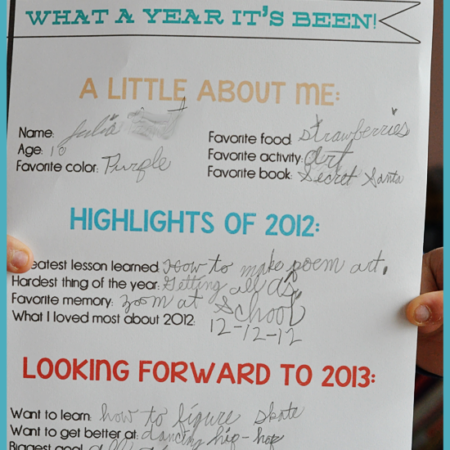 WHAT A YEAR IT'S BEEN!
A LITTLE ABOUT ME:
Name: Julia
Age: 10
Favorite color: Purple
Favorite food: strawberries
Favorite activity: art
Favorite book: Secret Santa
HIGHLIGHTS OF 2012:
eatest lesson learned: How to make poem art.
Hardest thing of the year: Getting all A's
Favorite memory: zoom at school
What I loved most about 2012: 12-12-12
LOOKING FORWARD TO 2013:
Want to learn: how to figure skate
Want to get better at: dancing hip-hop
Biggest goal: all